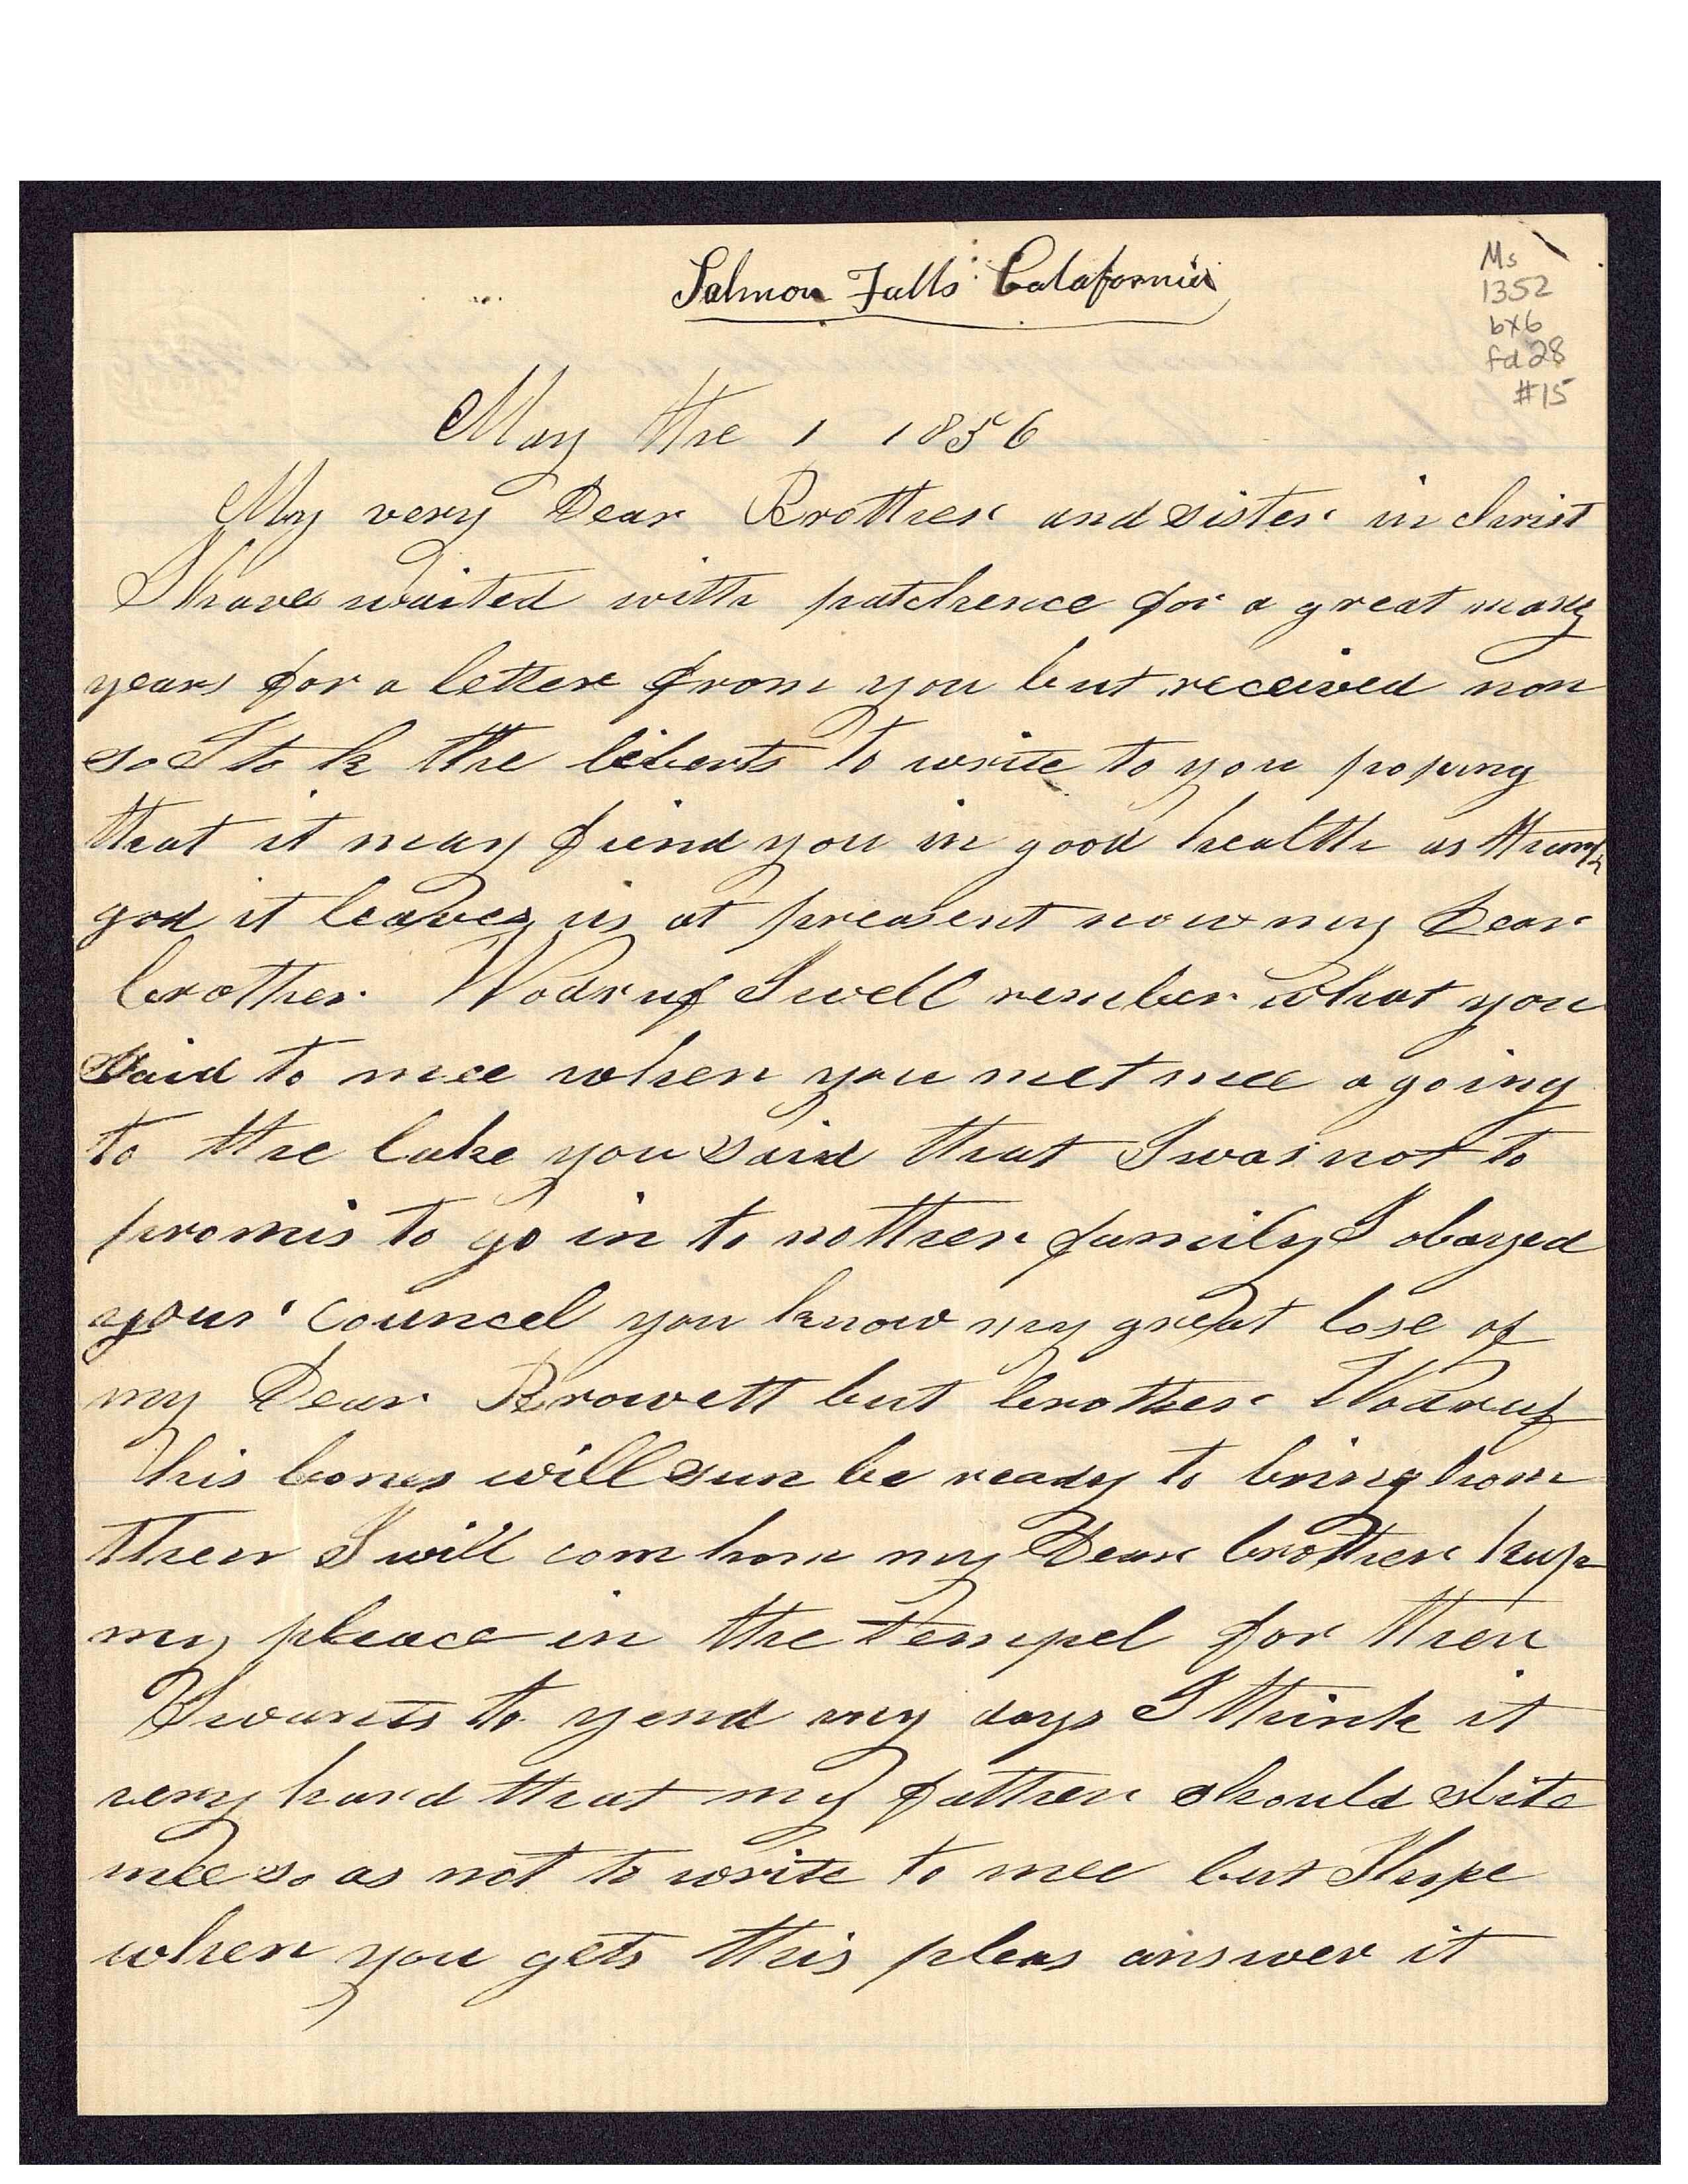 Salmon Falls Calafornia
Ms
1352
bx6
fd 28
#15
May the 1 1856
My very Dear Brother and sister in Christ
I have waited with patchence for a great many
years for a letter from you but received non
so I to k the liberts to write to you hopung
that it may fiend you in good health as thank
god it leaves us at preasent now my Dear
brother Wodruf I well rember what you
said to mee when you met mee a going
to the lake you said that I was not to
promis to go in to nother family I obayed
your councel you know my great lose of
my Dear Browett but brother Wodruf
his bones will sun be ready to bring hom
then I will com hom my Dear brother kup
my pleace in the tempel for then
I wants to yend my days I think it
very hard that my father should slite
mee so as not to write to mee but I hope
when you gets this pleas answer it